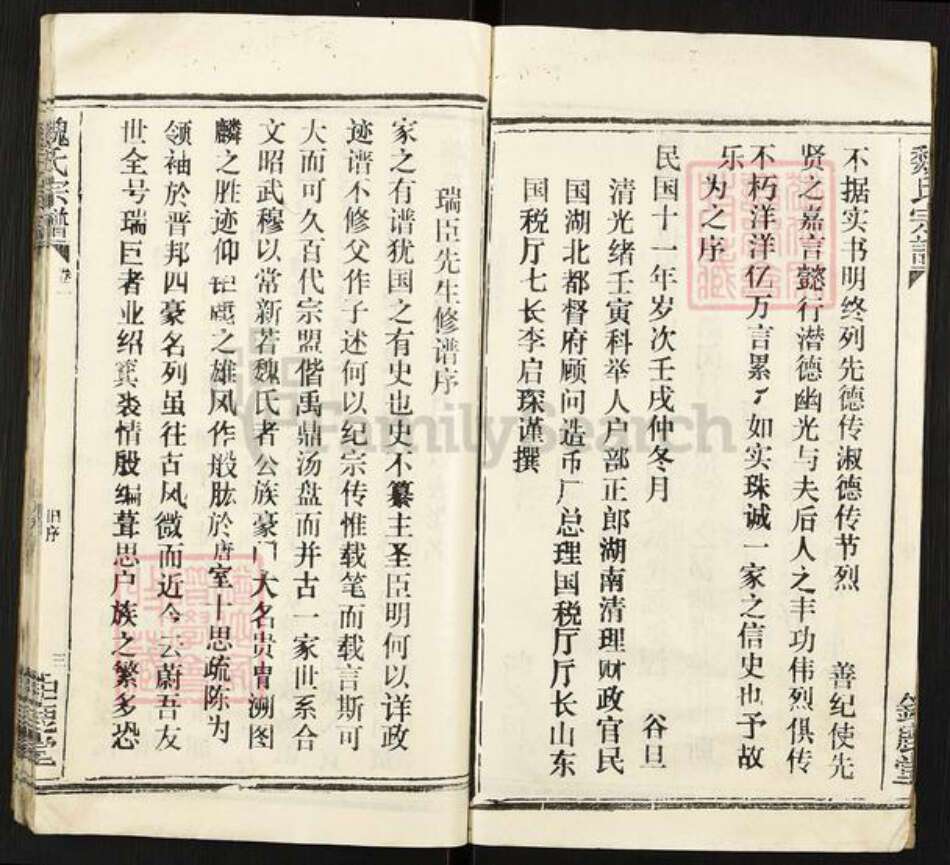 魏氏宗谱
不据实书明终列先德传淑德传节烈　善纪使先
贤之嘉言懿行潜德幽光与夫后人之丰功伟烈俱传
不朽洋洋亿万言累々如实珠诚一家之信史也予故
乐为之序
民国十一年岁次壬戌仲冬月　谷旦
清光绪壬寅科举人户部正郎湖南清理财政官民
国湖北都督府顾问造币厂总理国税厅厅长山东
国税厅七长李启琛谨撰
瑞臣先生修谱序
家之有谱犹国之有史也史不纂主圣臣明何以详政
迹谱不修父作子述何以纪宗传惟载笔而载言斯可
大而可久百代宗盟偕禹鼎汤盘而并古一家世系合
文昭武穆以常新若魏氏者公族豪门大名贵胄溯图
麟之胜迹仰之雄风作股肱於唐室十思疏陈为
领袖於晋邦四豪名列虽往古风微而近今云蔚吾友
世全号瑞巨者业绍箕裘情殷编葺思户族之繁多恐
魏氏宗谱
卷一
旧序
三
FamilySearch